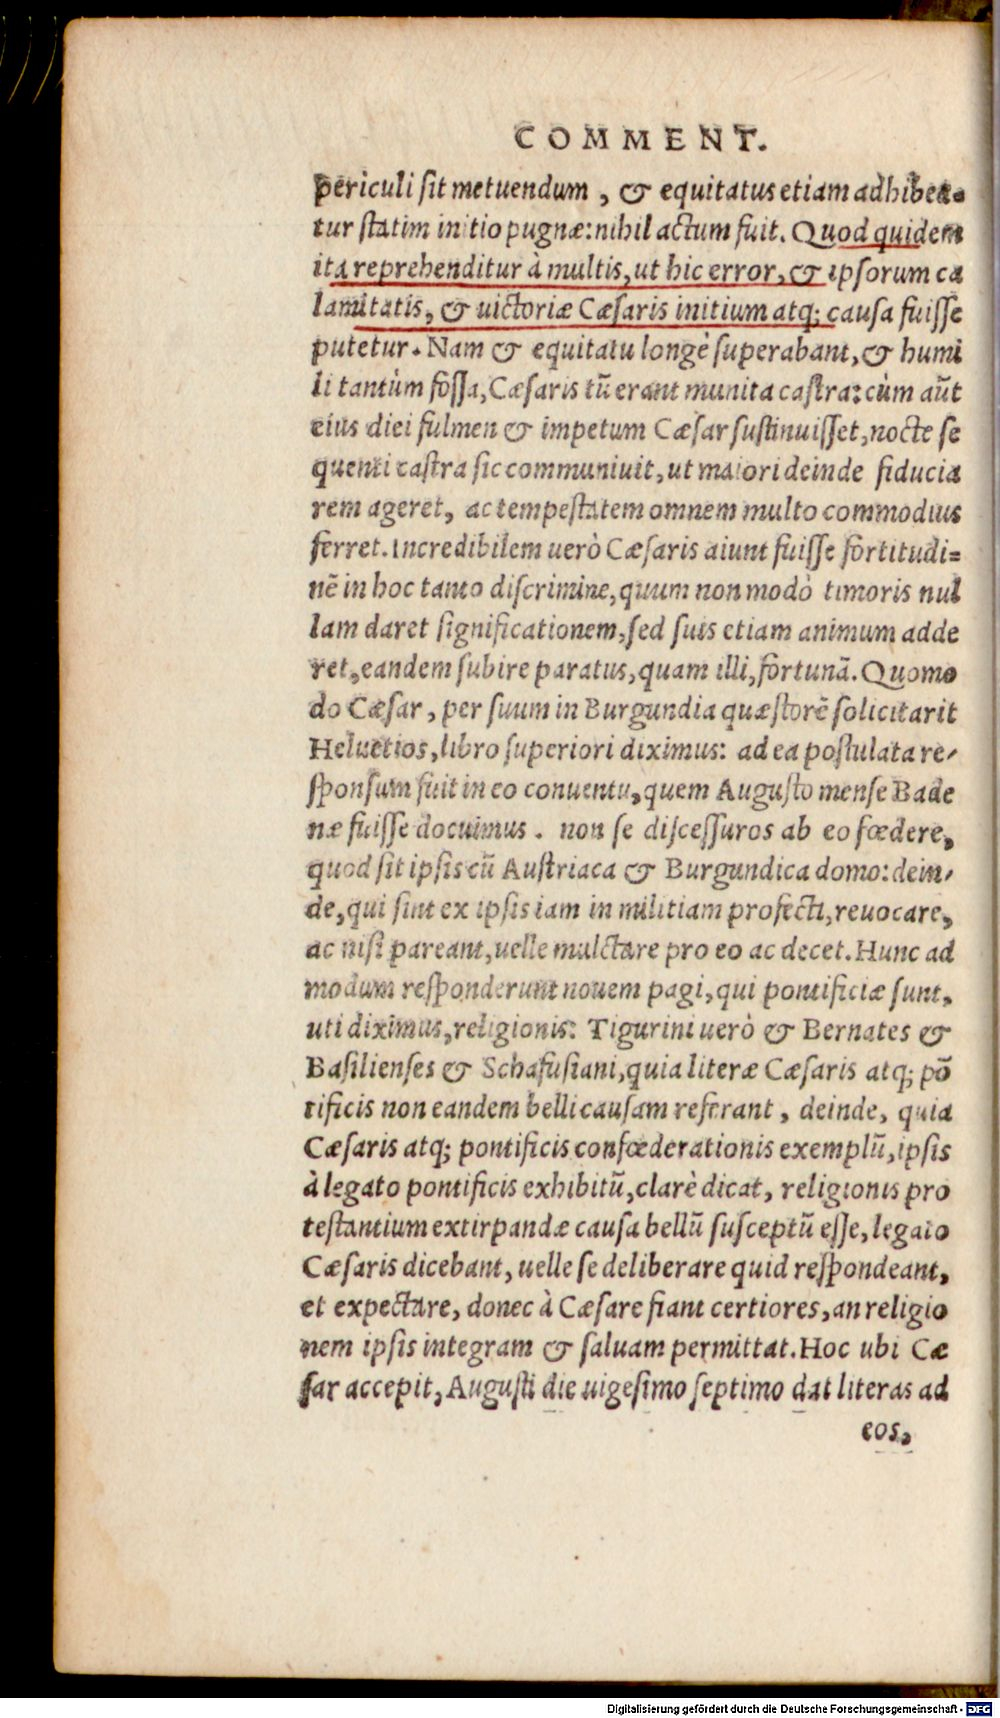 COMMENT.
periculi sit metuendum, & equitatus etiam adhibea-
tur statim initio pugnæ: nihil actum fuit. Quod quidem
ita reprehenditur à multis, ut hic error, & ipsorum ca
lamitatis, & uictoriæ Cæsaris initium atq; causa fuisse
putetur. Nam & equitatu longè superabant, & humi
li tantùm fossa, Cæsaris tũ erant munita castra: cùm aũt
eius diei fulmen & impetum Cæsar sustinuisset, nocte se
quenti castra sic communiuit, ut maiori deinde fiducia
rem ageret, ac tempestatem omnem multo commodius
ferret. Incredibilem uerò Cæsaris aiunt fuisse fortitudi=
nẽ in hoc tanto discrimine, quum non modò timoris nul
lam daret significationem, sed suis etiam animum adde
ret, eandem subire paratus, quam illi, fortunã. Quomo
do Cæsar, per suum in Burgundia quæstorẽ solicitarit
Heluetios, libro superiori diximus: ad ea postulata re-
sponsum fuit in eo conuentu, quem Augusto mense Bade
næ fuisse docuimus. non se discessuros ab eo fœdere,
quod sit ipsis cũ Austriaca & Burgundica domo: dein-
de, qui sint ex ipsis iam in militiam profecti, reuocare,
ac nisi pareant, uelle mulctare pro eo ac decet. Hunc ad
modum responderunt nouem pagi, qui pontificiæ sunt,
uti diximus, religionis: Tigurini uerò & Bernates &
Basilienses & Schafusiani, quia literæ Cæsaris atq; põ
tificis non eandem belli causam referant, deinde, quia
Cæsaris atq; pontificis confœderationis exemplũ, ipsis
à legato pontificis exhibitũ, clarè dicat, religionis pro
testantium extirpandæ causa bellũ susceptũ esse, legato
Cæsaris dicebant, uelle se deliberare quid respondeant,
et expectare, donec à Cæsare fiant certiores, an religio
nem ipsis integram & saluam permittat. Hoc ubi Cæ
sar accepit, Augusti die uigesimo septimo dat literas ad
eos,
Digitalisierung gefördert durch die Deutsche Forschungsgemeinschaft - DFG